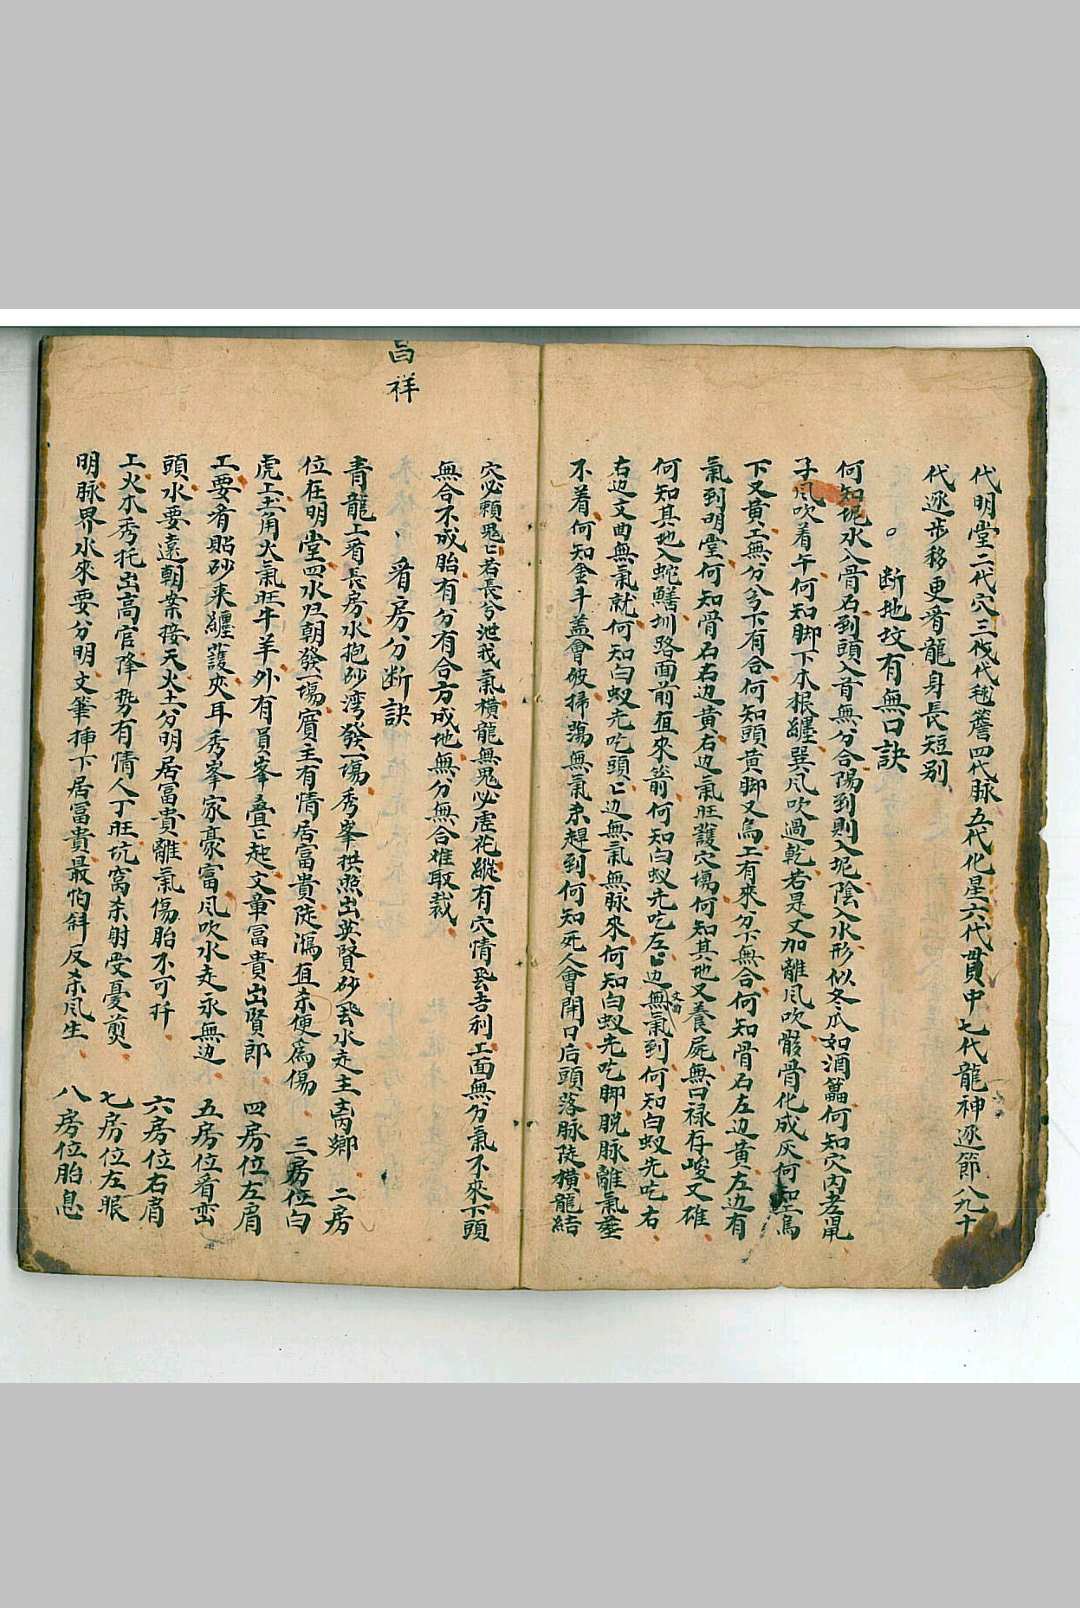 代明堂二代穴三代毬簷四代脉五代化星六代貫中七代龍神逐節八九十
代逐步移更看龍身長短别
断地坟有無口訣
何知坭水入骨石到頭入首無分合陽到則入坭陰入水形似冬瓜如酒𦉥何知穴内老鼠
子風吹着午何知脚下木根纏巽風吹過乾若是又加離風吹骸骨化成灰何知烏
下又黄工無分兮下有合何知頭黄脚又烏工有來分下無合何知骨石左边黄左边有
氣到明堂何知骨石右边黄右边氣旺護穴塲何知其地又養屍無曰禄存峻又雄
何知其地入蛇鱔圳路面前直來箭何知白蚁先吃左匕边無氣到何知白蚁先吃右
右边文曲無氣就何知白蚁先吃頭匕边無氣無脉來何知白蚁先吃脚脱脉離氣
不着何知金斗盖會破掃蕩無氣來趕到何知死人會開口后頭落脉陡横龍結
穴必頼鬼匕若長兮泄我氣横龍無鬼必虚花縱有穴情丟吉利工面無分氣不來下頭
無合不成胎有分有合方成地無分無合难取裁
看房分断訣
青龍上看長房水抱砂湾發一塲秀峯拱照出英賢砂飛水走主离鄉 二房
位在明堂四水归朝發一塲賓主有情居富貴陡瀉直來便為傷 三房位白
虎上主角火氣旺牛羊外有員峯叠匕起文章富貴出賢郎 四房位左肩
工要看貼砂来纏護夾耳秀峯家豪富風吹水走永無边 五房位看峦
頭水要遠朝案接天火土分明居富貴離氣傷胎不可扦 六房位右肩
工火木秀托出高官降势有情人丁旺坑窩杀射受憂煎 七房位左眼
明脉界水來要分明文筆挿下居富貴最怕斜反杀風生 八房位胎息
昌祥